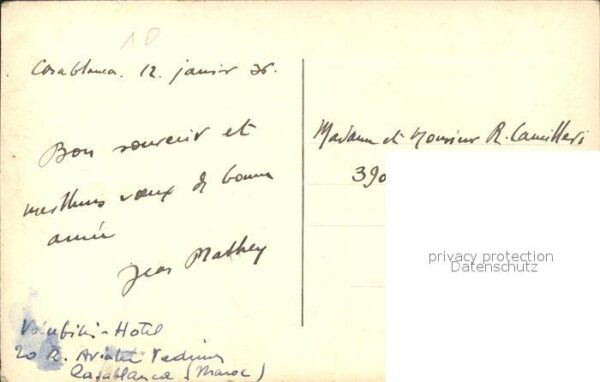 10
Casablanca. 12. janvier 36.
Bon souvenir et
meilleurs vœux de bonne
année
Jean Mathey
Hotel
20 R. Aviateur
Casablanca (Maroc)
Madame et Monsieur R. Camilleri
390
privacy protection
Datenschutz